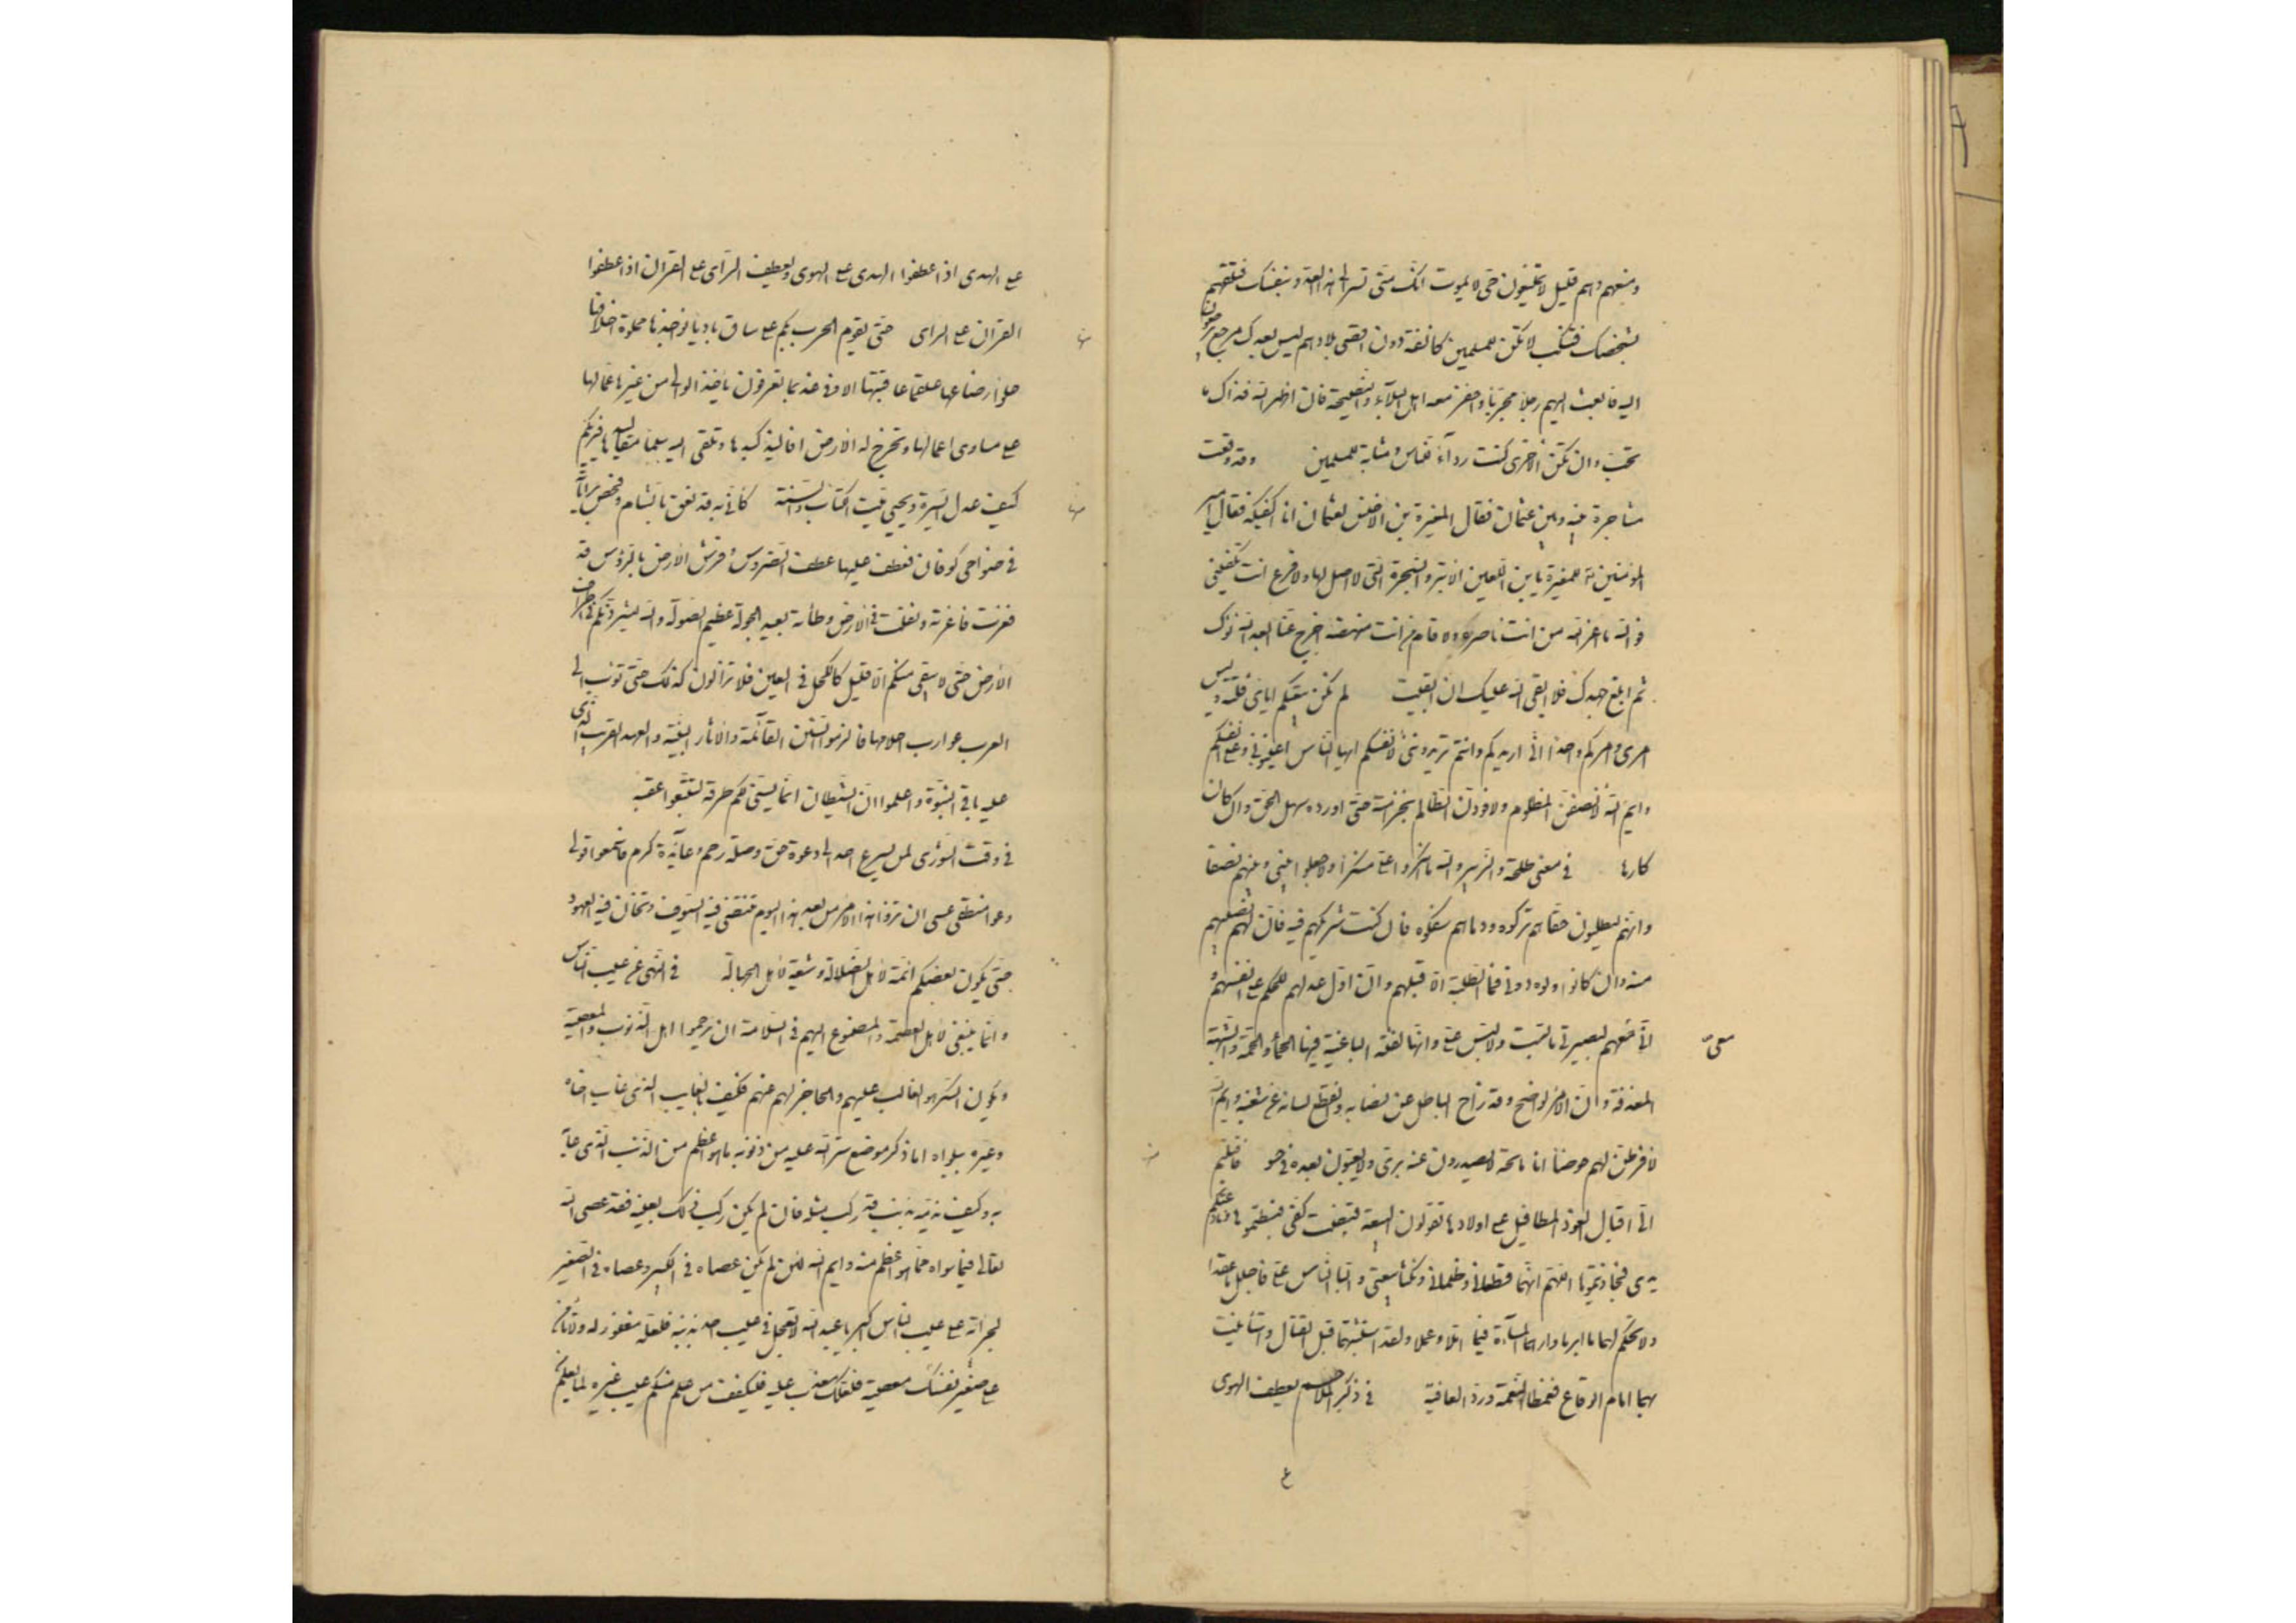 ومنعهم وهم قليل لا يمتنعون حى لا يموت انك متى تسر الى هذا العدو بنفسك فتلقهم
بشخصك فتنكب لا تكن للمسلمين كانفة دون اقصى بلادهم ليس بعدك مرجع يرجعون
اليه فابعث اليهم رجلا مجربا واحفز معه اهل البلاء والنصيحة فان اظهر الله فذاك ما
تحب وان تكن الاخرى كنت ردآء للناس ومثابة للمسلمين وقد وقعت
مشاجرة بينه وبين عثمان فقال المغيرة بن الاخنس لعثمان انا اكفيكه فقال امير
المؤمنين للمغيرة يابن اللعين الابتر والشجرة التى لا اصل لها ولا فرع انت تكفينى
فوالله ما اعز الله من انت ناصره ولا قام من انت منهضه اخرج عنا ابعد الله نواك
ثم ابلغ جهدك فلا ابقى الله عليك ان ابقيت لم تكن بيعتكم اياى فلتة وليس
امرى وامركم واحدا انى اريدكم لله وانتم تريدوننى لانفسكم ايها الناس اعينونى على انفسكم
وايم الله لانصفن المظلوم ولاقودن الظالم بخزامته حتى اورده منهل الحق وان كان
كارها فى معنى طلحة والزبير والله ما انكروا على منكرا ولا جعلوا بينى وبينهم نصفا
وانهم ليطلبون حقا هم تركوه ودما هم سفكوه فان كنت شريكهم فيه فان لهم نصيبهم
منه وان كانوا ولوه دونى فما الطلبة الا قبلهم وان اول عدلهم للحكم على انفسهم و
ان معهم لبصيرتى ما لبست ولا لبس على وانها للفئة الباغية فيها الحمأ والحمة والشبهة
المغدفة وان الامر لواضح وقد زاح الباطل عن نصابه وانقطع لسانه عن شغبه وايم الله
لافرطن لهم حوضا انا ماتحه لا يصدرون عنه برى ولا يعبون بعده فى حسى فاقبلتم
الى اقبال العوذ المطافيل على اولادها تقولون البيعة البيعة قبضت كفى فبسطتموها ونازعتكم
يدى فجاذبتموها اللهم انهما قطعانى وظلمانى ونكثا بيعتى والبا الناس على فاحلل ما عقدا
ولا تحكم لهما ما ابرما وارهما المسآءة فيما املا وعملا ولقد استثبتهما قبل القتال واستأنيت
بهما امام الوقاع فغمطا النعمة وردا العافية فى ذكر الملاحم يعطف الهوى
على الهدى اذا عطفوا الهدى على الهوى ويعطف الراى على القران اذا عطفوا
القران على الراى حتى تقوم الحرب بكم على ساق باديا نواجذها مملوة اخلافها
حلوا رضاعها علقما عاقبتها الا وفى غد بما لا تعرفون ياخذ الوالى من غيرها عمالها
على مساوى اعمالها وتخرج له الارض افاليذ كبدها وتلقى اليه سلما مقاليدها فيريكم
كيف عدل السيرة ويحيى ميت الكتاب والسنة كانى به قد نعق بالشام وفحص براياته
فى ضواحى كوفان فعطف عليها عطف الضروس وفرش الارض بالرؤس قد
فغرت فاغرته وثقلت فى الارض وطأته بعيد الجولة عظيم الصولة والله ليشردنكم فى اطراف
الارض حتى لا يبقى منكم الا قليل كالكحل فى العين فلا تزالون كذلك حتى توب الى
العرب عوازب احلامها فالزموا السنن القائمة والاثار البينة والعهد القريب الذى
عليه باقى النبوة واعلموا ان الشيطان انما يسنى لكم طرقه لتتبعوا عقبه
فى وقت الشورى لن يسرع احد الى دعوة حق وصلة رحم وعائدة كرم فاسمعوا قولى
وعوا منطقى عسى ان تروا هذا الامر من بعد هذا اليوم تنتضى فيه السيوف وتخان فيه العهود
حتى يكون بعضكم ائمة لاهل الضلالة وشيعة لاهل الجهالة فى النهى عن عيب الناس
وانما ينبغى لاهل العصمة والمصنوع اليهم فى السلامة ان يرحموا اهل الذنوب والمعصية
ويكون الشكر هو الغالب عليهم والحاجز لهم عنهم فكيف بالغايب الذى عاب اخاه
وعيره ببلواه اما ذكر موضع ستر الله عليه من ذنوبه ما هو اعظم من الذنب الذى عابه
به وكيف يذمه بذنب قد ركب مثله فان لم يكن ركب ذلك بعينه فقد عصى الله
تعالى فيما سواه مما هو اعظم منه وايم الله لئن لم يكن عصاه فى الكبير وعصاه فى الصغير
لجرأته على عيب الناس اكبر يا عبد الله لا تعجل فى عيب احد بذنبه فلعله مغفور له ولا تأمن
على صغير نفسك معصية فلعلك معذب عليه فليكفف من علم منكم عيب غيره لما يعلم